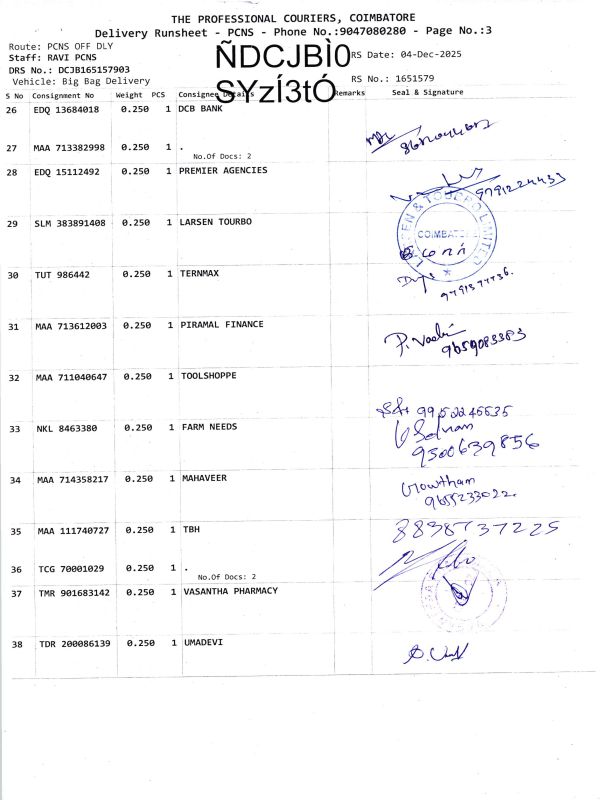 THE PROFESSIONAL COURIERS, COIMBATORE
Delivery Runsheet - PCNS - Phone No.:9047080280 - Page No.:3
Route: PCNS OFF DLY
Staff: RAVI PCNS
DRS No.: DCJB165157903
Vehicle: Big Bag Delivery
ÑDCJBÌ0
SYzÍ3tÓ
RS Date: 04-Dec-2025
RS No.: 1651579
S No Consignment No Weight PCS Consignee Details Remarks Seal & Signature
26 EDQ 13684018 0.250 1 DCB BANK
27 MAA 713382998 0.250 1 .
No.Of Docs: 2
28 EDQ 15112492 0.250 1 PREMIER AGENCIES
9791224433
29 SLM 383891408 0.250 1 LARSEN TOURBO
LARSEN & TOUBRO LIMITED
COIMBATORE
30 TUT 986442 0.250 1 TERNMAX
31 MAA 713612003 0.250 1 PIRAMAL FINANCE
9659083383
32 MAA 711040647 0.250 1 TOOLSHOPPE
9952245535
33 NKL 8463380 0.250 1 FARM NEEDS
9500639856
34 MAA 714358217 0.250 1 MAHAVEER
Gowtham
9655233022
35 MAA 111740727 0.250 1 TBH
8838737225
36 TCG 70001029 0.250 1 .
No.Of Docs: 2
37 TMR 901683142 0.250 1 VASANTHA PHARMACY
38 TDR 200086139 0.250 1 UMADEVI